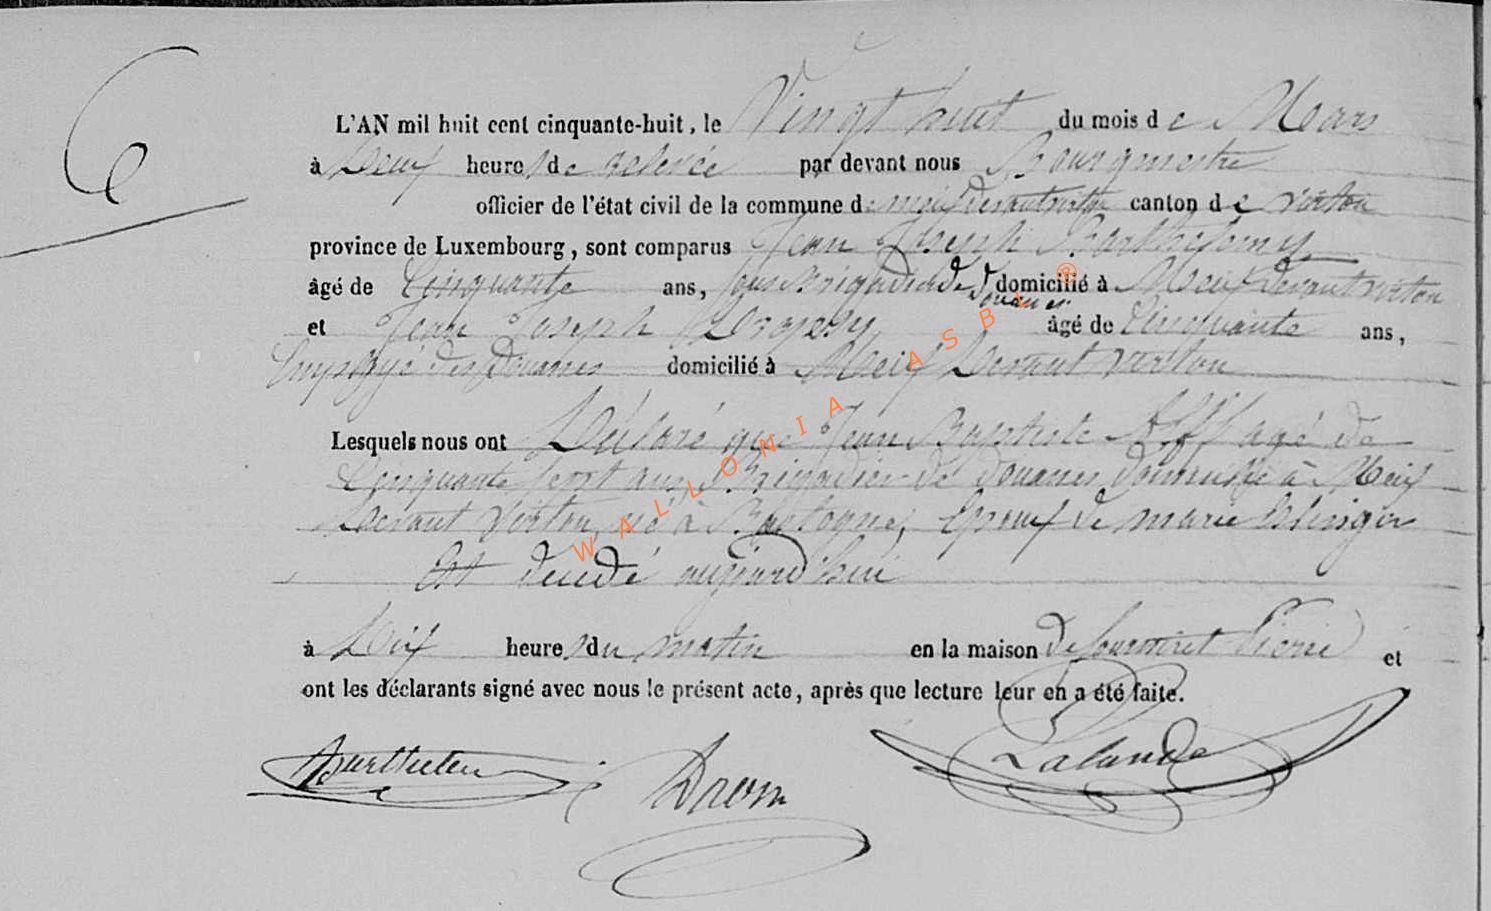 6
L'AN mil huit cent cinquante-huit, le Vingt huit du mois de Mars
à Deux heures de relevée par devant nous Bourgmestre
officier de l'état civil de la commune de meix devant virton canton de virton
province de Luxembourg, sont comparus Jean Joseph Barthelemy
âgé de Cinquante ans, sous Brigadier de Douanes domicilié à Meix Devant virton
et Jean Joseph âgé de Cinquante ans,
Employé des Douanes domicilié à Meix Devant virton
Lesquels nous ont Déclaré que Jean Baptiste Alff agé de
Cinquante sept ans, Brigadier de douanes domicilié à Meix
Devant Virton, né à Bastogne, Epoux de marie
Est decedé aujourd'hui
à Dix heures du matin en la maison de Pierre et
ont les déclarants signé avec nous le présent acte, après que lecture leur en a été faite.
Lalande
WALLONIA ASBL ®